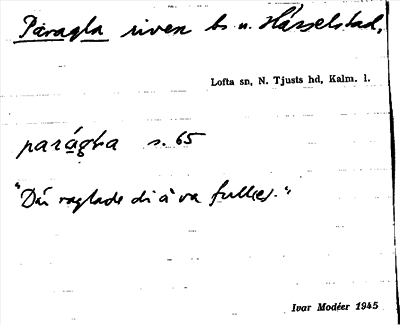 Paragla riven bs u. Hässelstad,
Lofta sn, N. Tjusts hd, Kalm. l.
parágla s. 65
"Där raglade di å va fulle(r)."
Ivar Modéer 1945